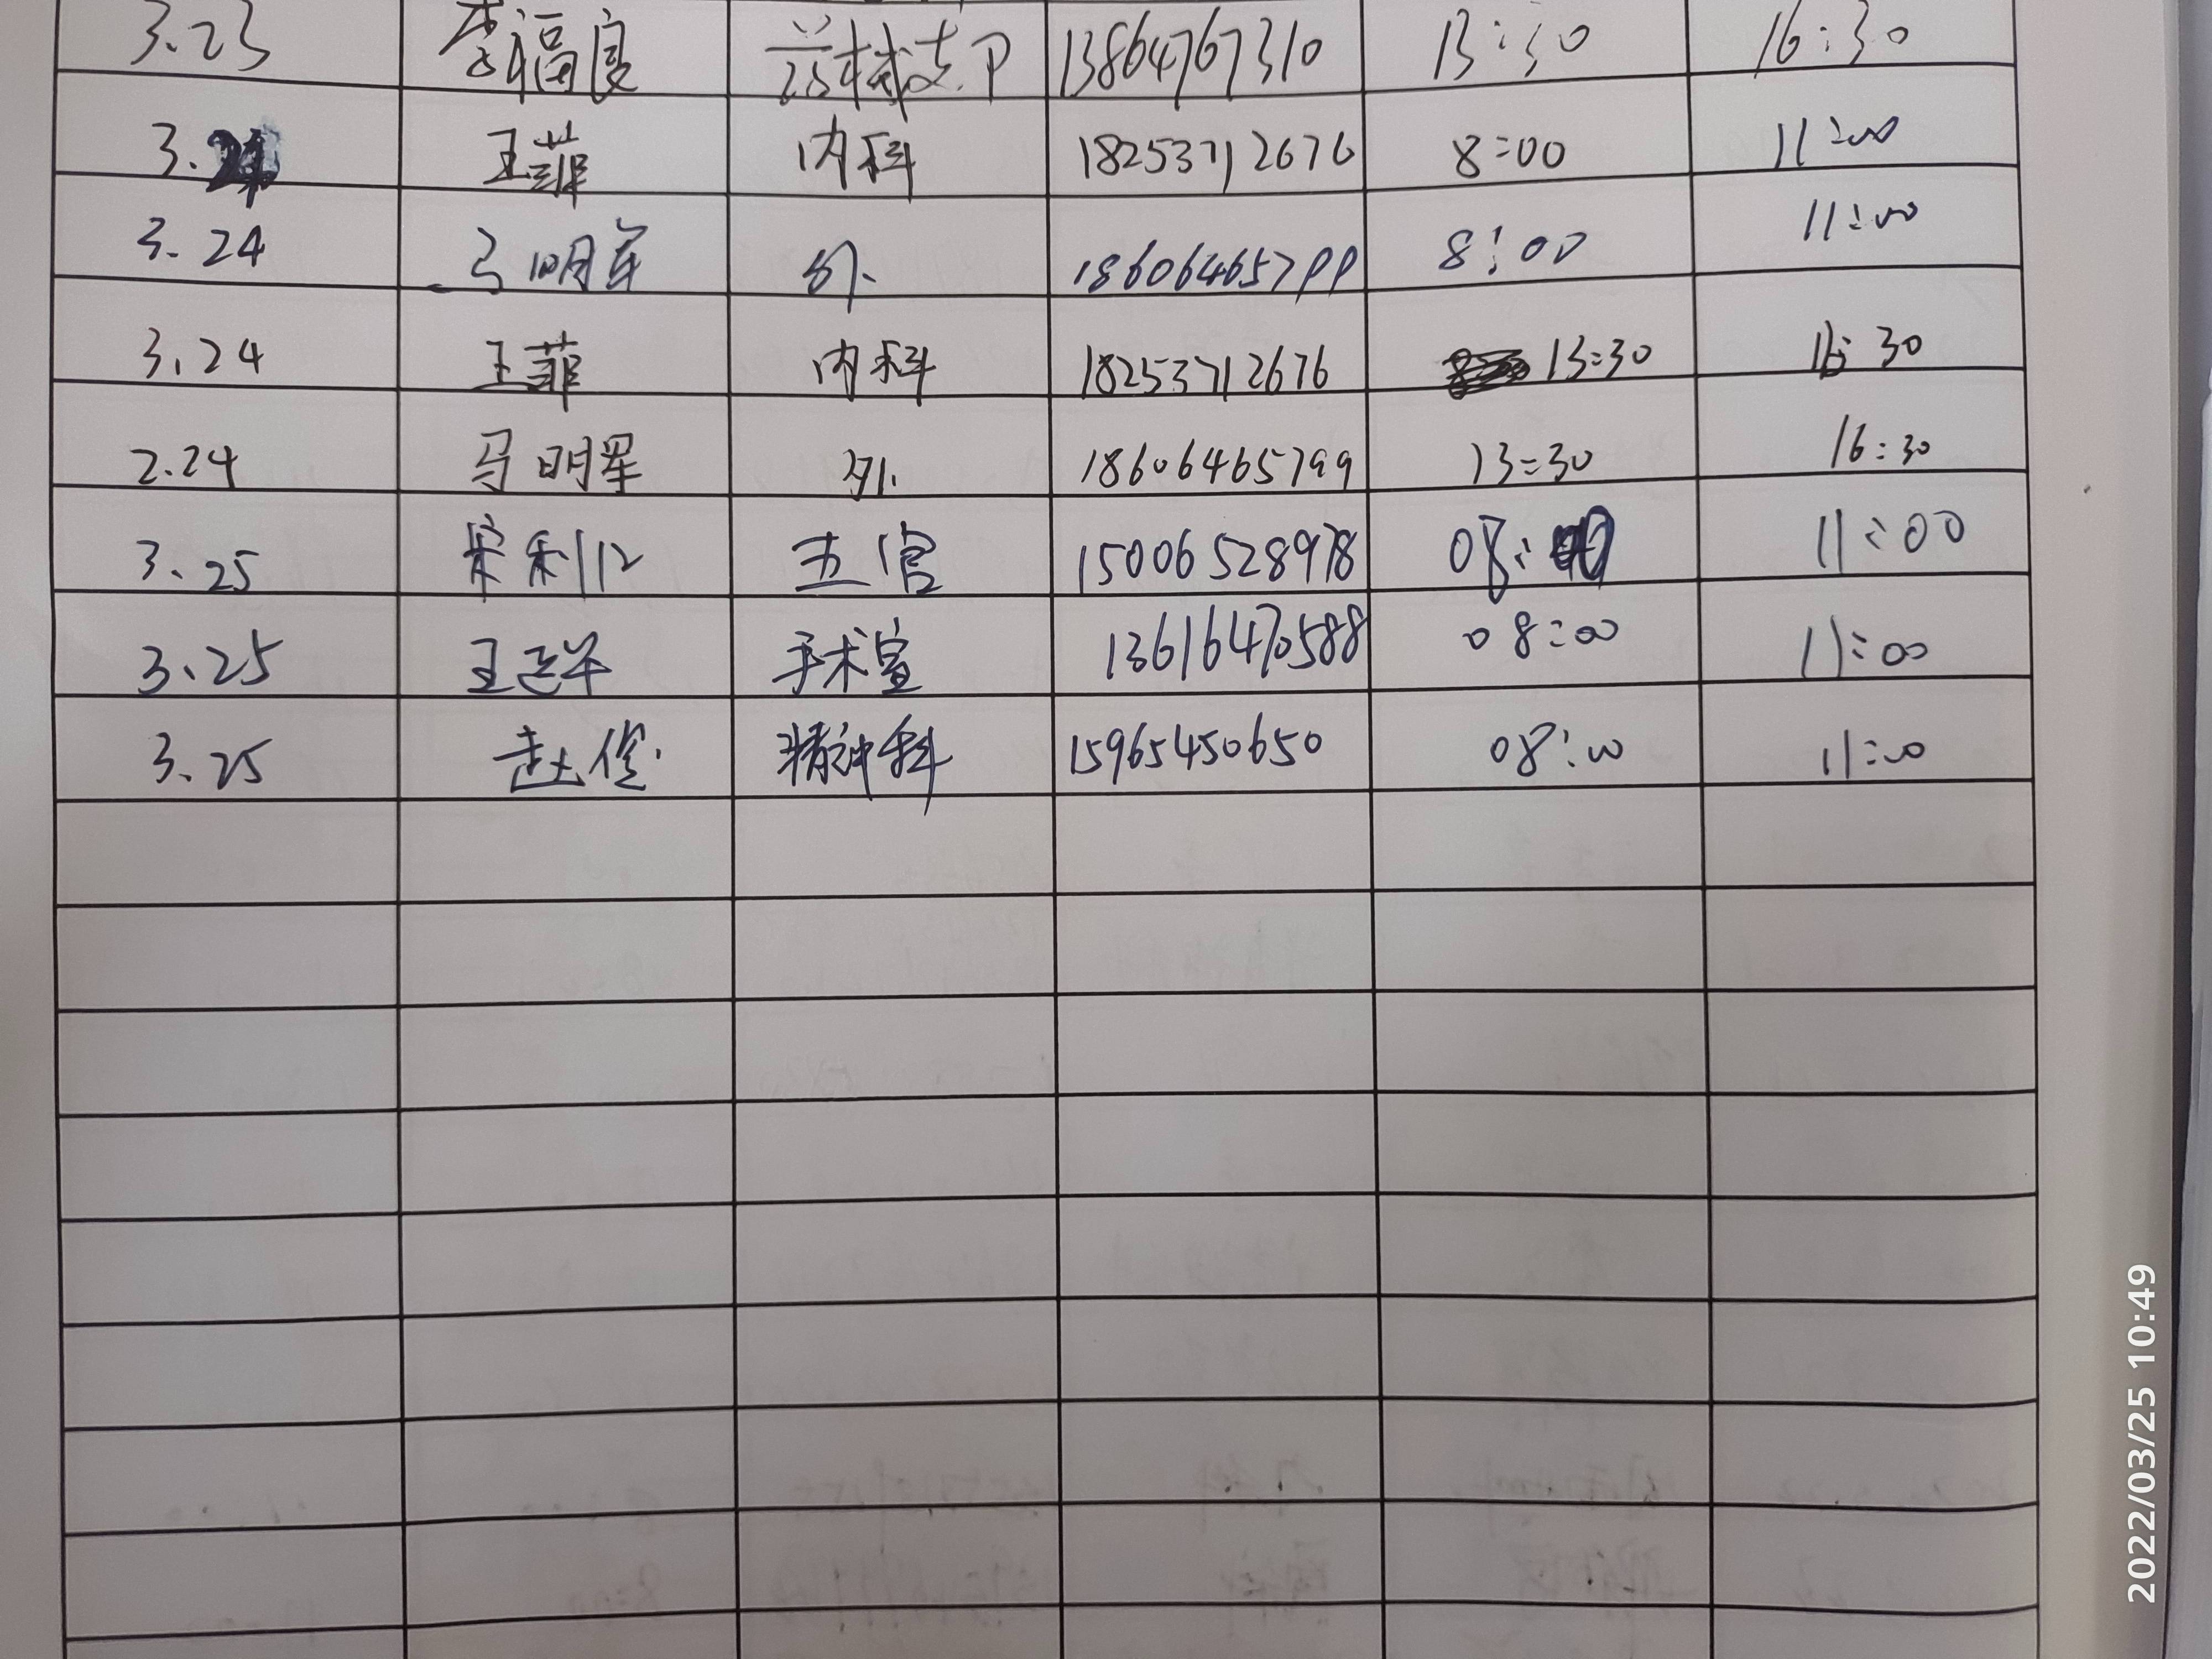 3.23 李福良 13864767310 13:30 16:30
3.24 王菲 内科 18253712676 8:00 11:00
3.24 马明军 外. 18606465799 8:00 11:00
3.24 王菲 内科 18253712676 13:30 16:30
2.24 马明军 外. 18606465799 13:30 16:30
3.25 五官 15006528978 08:00 11:00
3.25 手术室 13616470588 08:00 11:00
3.25 赵俊 精神科 15965450650 08:00 11:00
2022/03/25 10:49